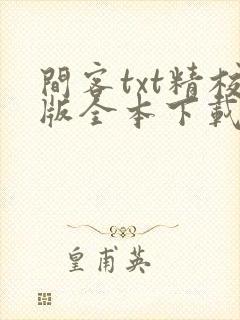 間客txt精校
版全本下載
皇甫英